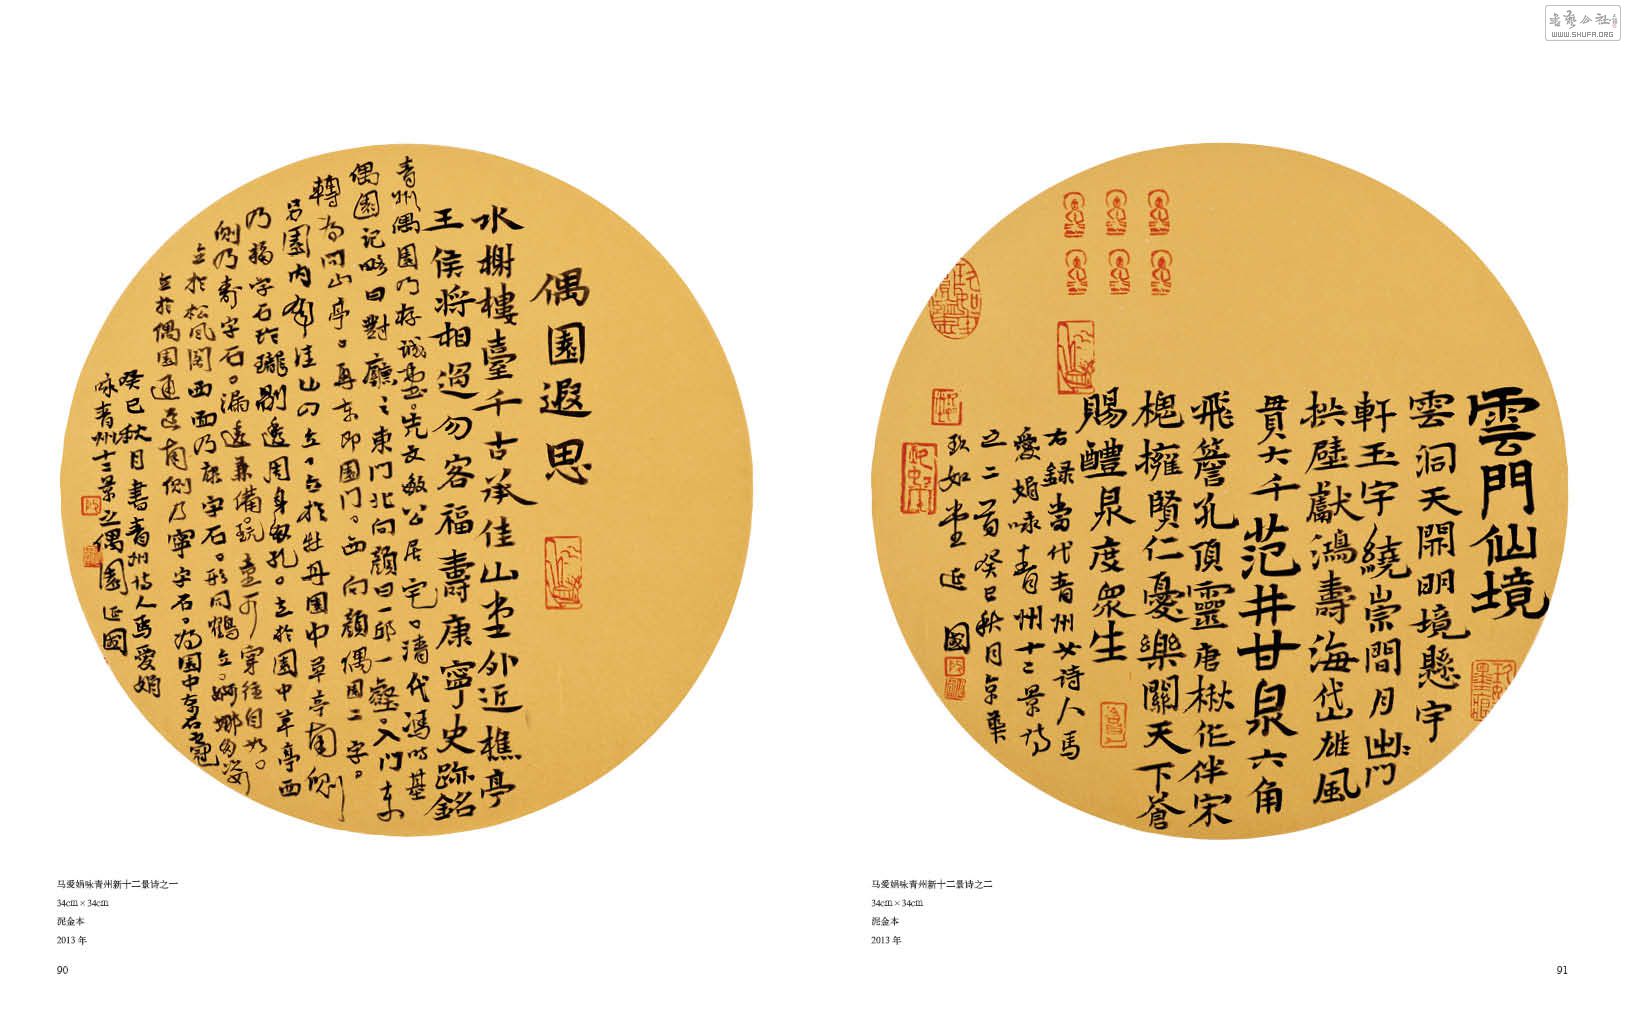 偶園遐思
水榭樓臺千古承佳山堂外近樵亭
王侯將相過勿客福壽康寧史跡銘
青州偶園乃存誠堂先文敏公居宅清代馮時基
偶園記略曰對廳之東門北向顏曰一邱一壑入門東
轉為問山亭再东即園门西向顏偶園二字
另園内有佳山四立立於牡丹園中草亭南側
乃福字石玲瓏剔透周身多孔立於園中草亭西
側乃壽字石漏透兼備玩童可穿往自如
立於松風閣西面乃康字石形同鶴立婀娜多姿
立於偶園通道南側乃寧字石為園中奇石之冠
癸巳秋月書青州诗人馬愛娟
咏青州十二景之偶園延國
马爱娟咏青州新十二景诗之一
34cm×34cm
泥金本
2013 年
90
雲門仙境
雲洞天開明境懸宇
軒玉宇繞崇間月出門
拱壁獻鴻壽海岱雄風
貫大千范井甘泉六角
飛簷孔頂靈唐楸作伴宋
槐擁賢仁憂樂關天下蒼
賜醴泉度衆生
右録當代青州女詩人馬
愛娟咏青州十二景詩
之二首癸巳秋月京華
玖如堂延國
马爱娟咏青州新十二景诗之二
34cm×34cm
泥金本
2013 年
91
WWW.SHUFA.ORG